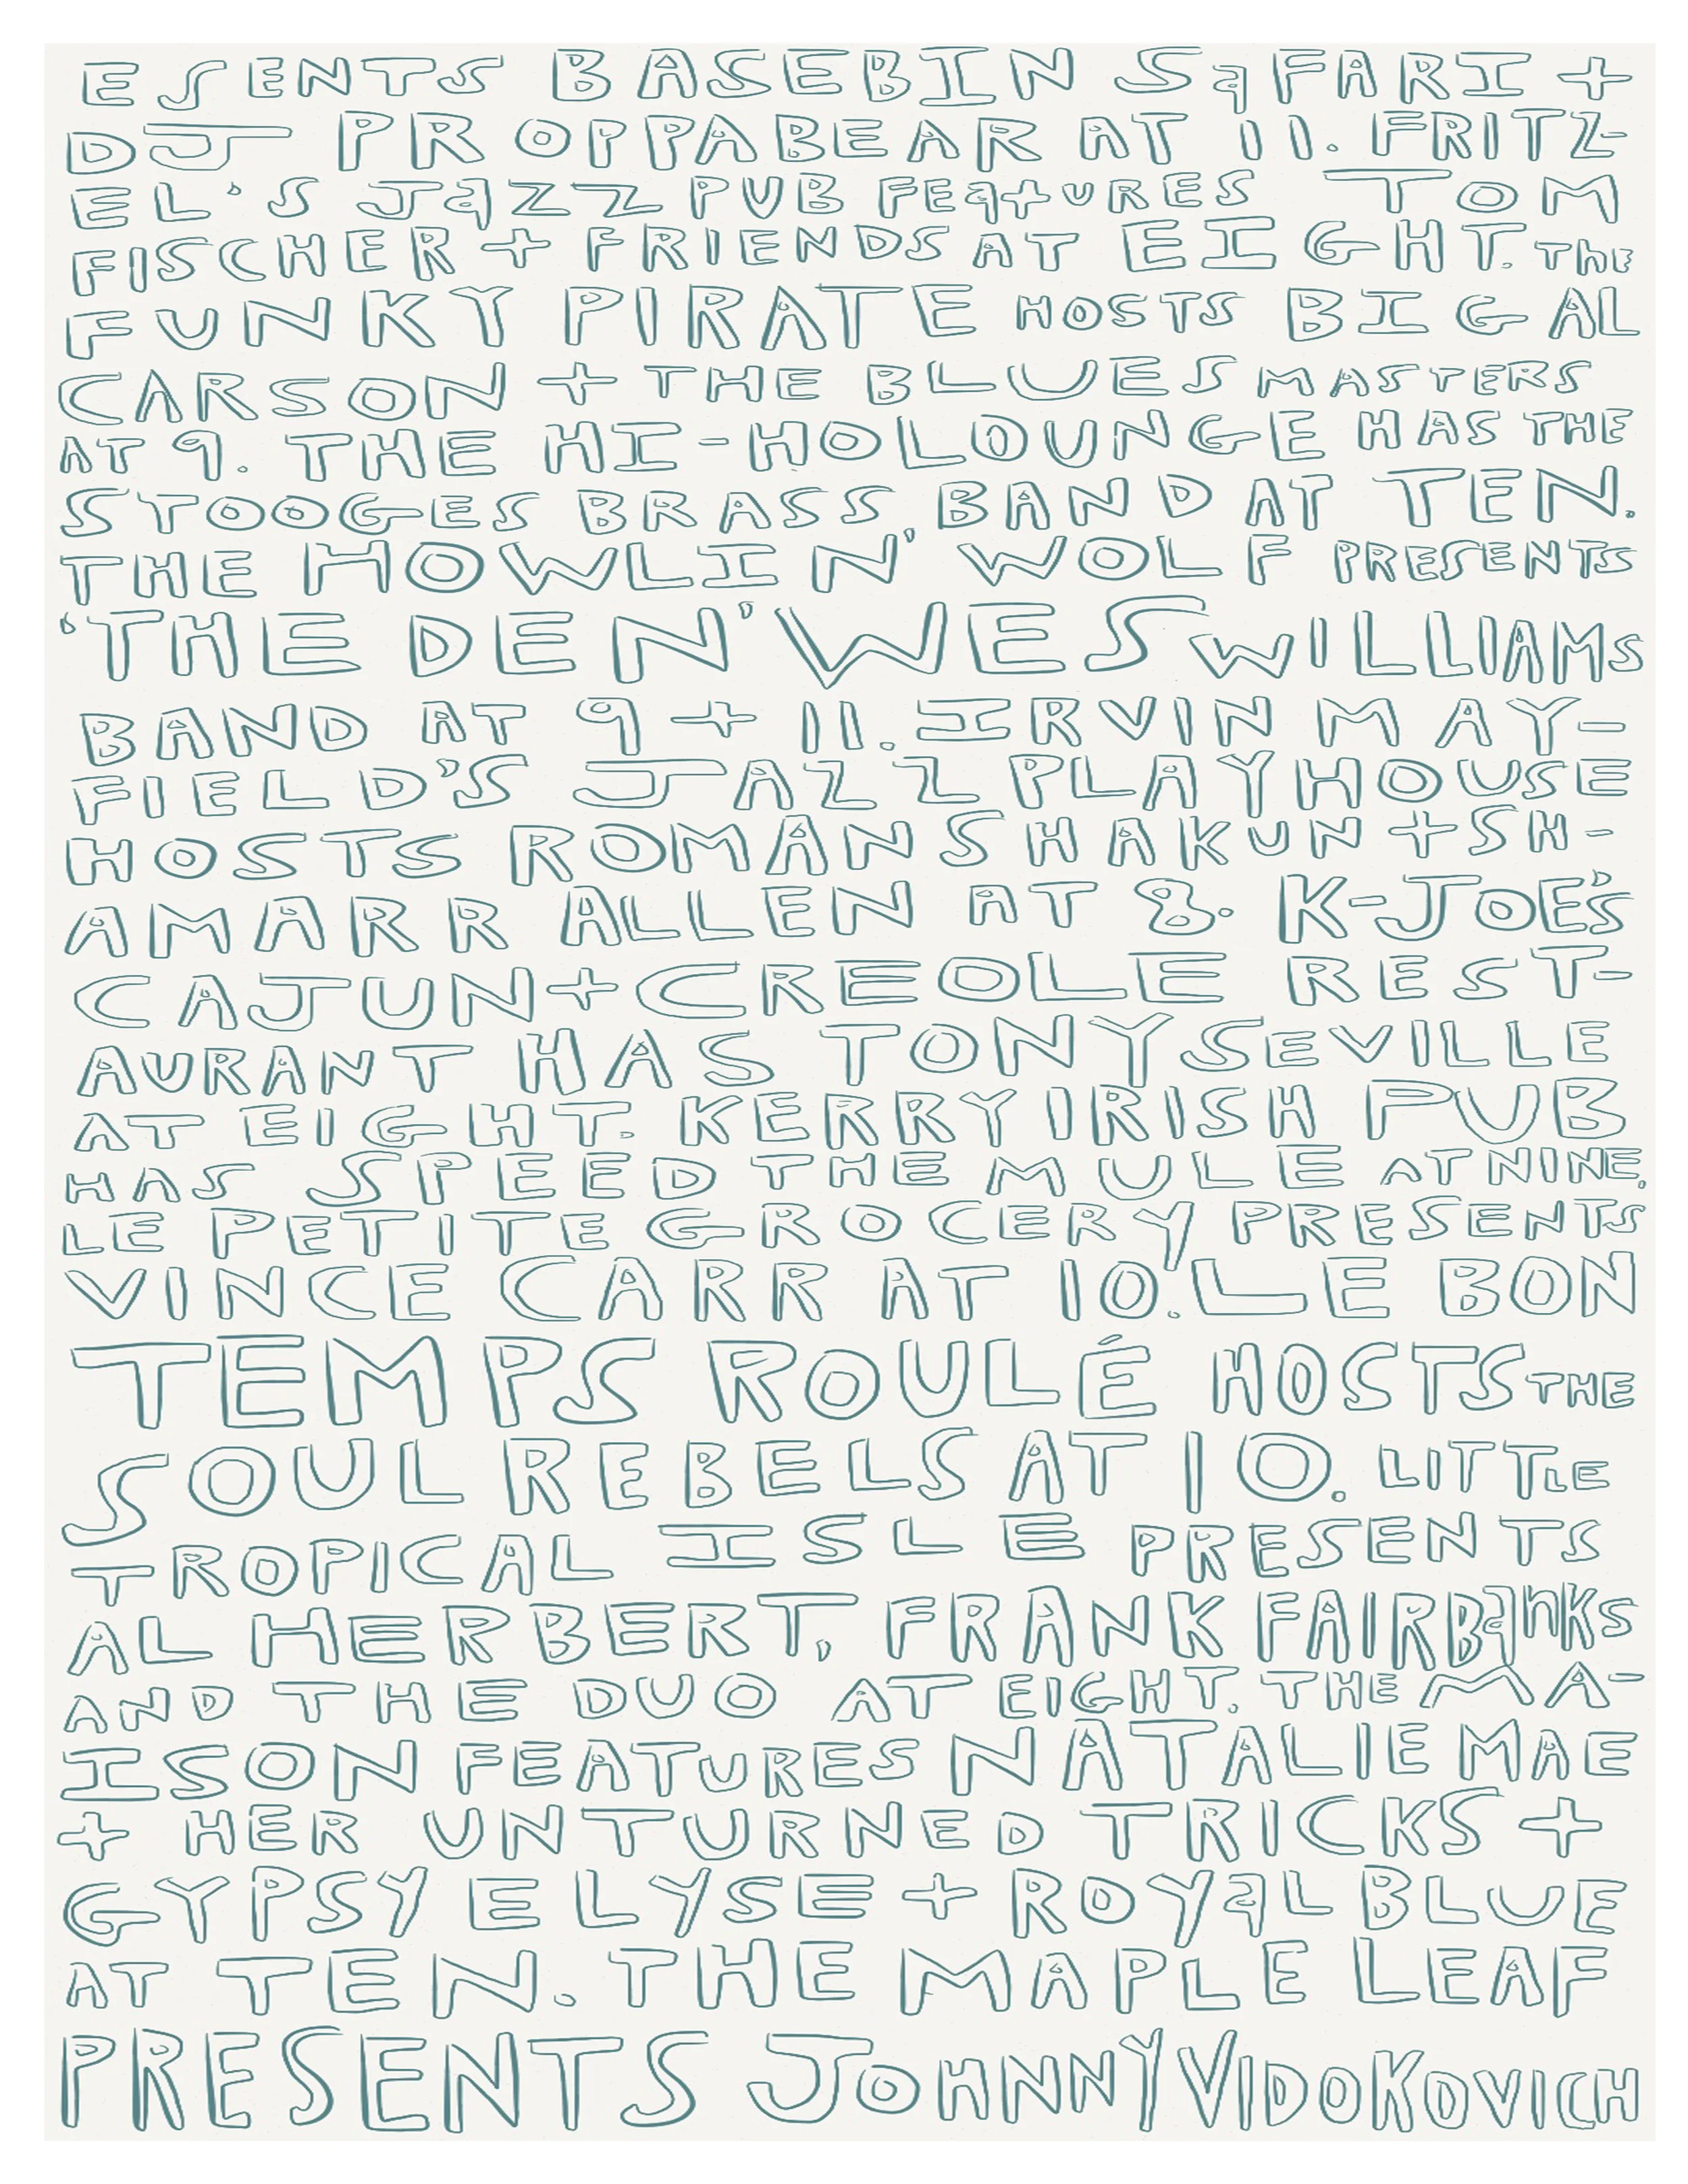 ESENTS BASEBIN SaFARI +
DJ PROPPABEAR AT 11. FRITZ-
EL'S JaZZ PUB FEatURES TOM
FISCHER + FRIENDS AT EIGHT. The
FUNKY PIRATE HOSTS BIG AL
CARSON + THE BLUES MASTERS
AT 9. THE HI-HO LOUNGE HAS THE
STOOGES BRASS BAND AT TEN.
THE HOWLIN' WOLF PRESENTS
'THE DEN' WES WILLIAMS
BAND AT 9 + 11. IRVIN MAY-
FIELD'S JAZZ PLAYHOUSE
HOSTS ROMAN SHAKUN + SH-
AMARR ALLEN AT 8. K-JOE'S
CAJUN + CREOLE REST-
AURANT HAS TONY SEVILLE
AT EIGHT. KERRY IRISH PUB
HAS SPEED THE MULE AT NINE.
LE PETITE GROCERY PRESENTS
VINCE CARR AT 10. LE BON
TEMPS ROULÉ HOSTS THE
SOUL REBELS AT 10. LITTLE
TROPICAL ISLE PRESENTS
AL HERBERT, FRANK FAIRBanKS
AND THE DUO AT EIGHT. THE MA-
ISON FEATURES NATALIE MAE
+ HER UNTURNED TRICKS +
GYPSY ELYSE + ROYaL BLUE
AT TEN. THE MAPLE LEAF
PRESENTS JOHNNY VIDOKOVICH